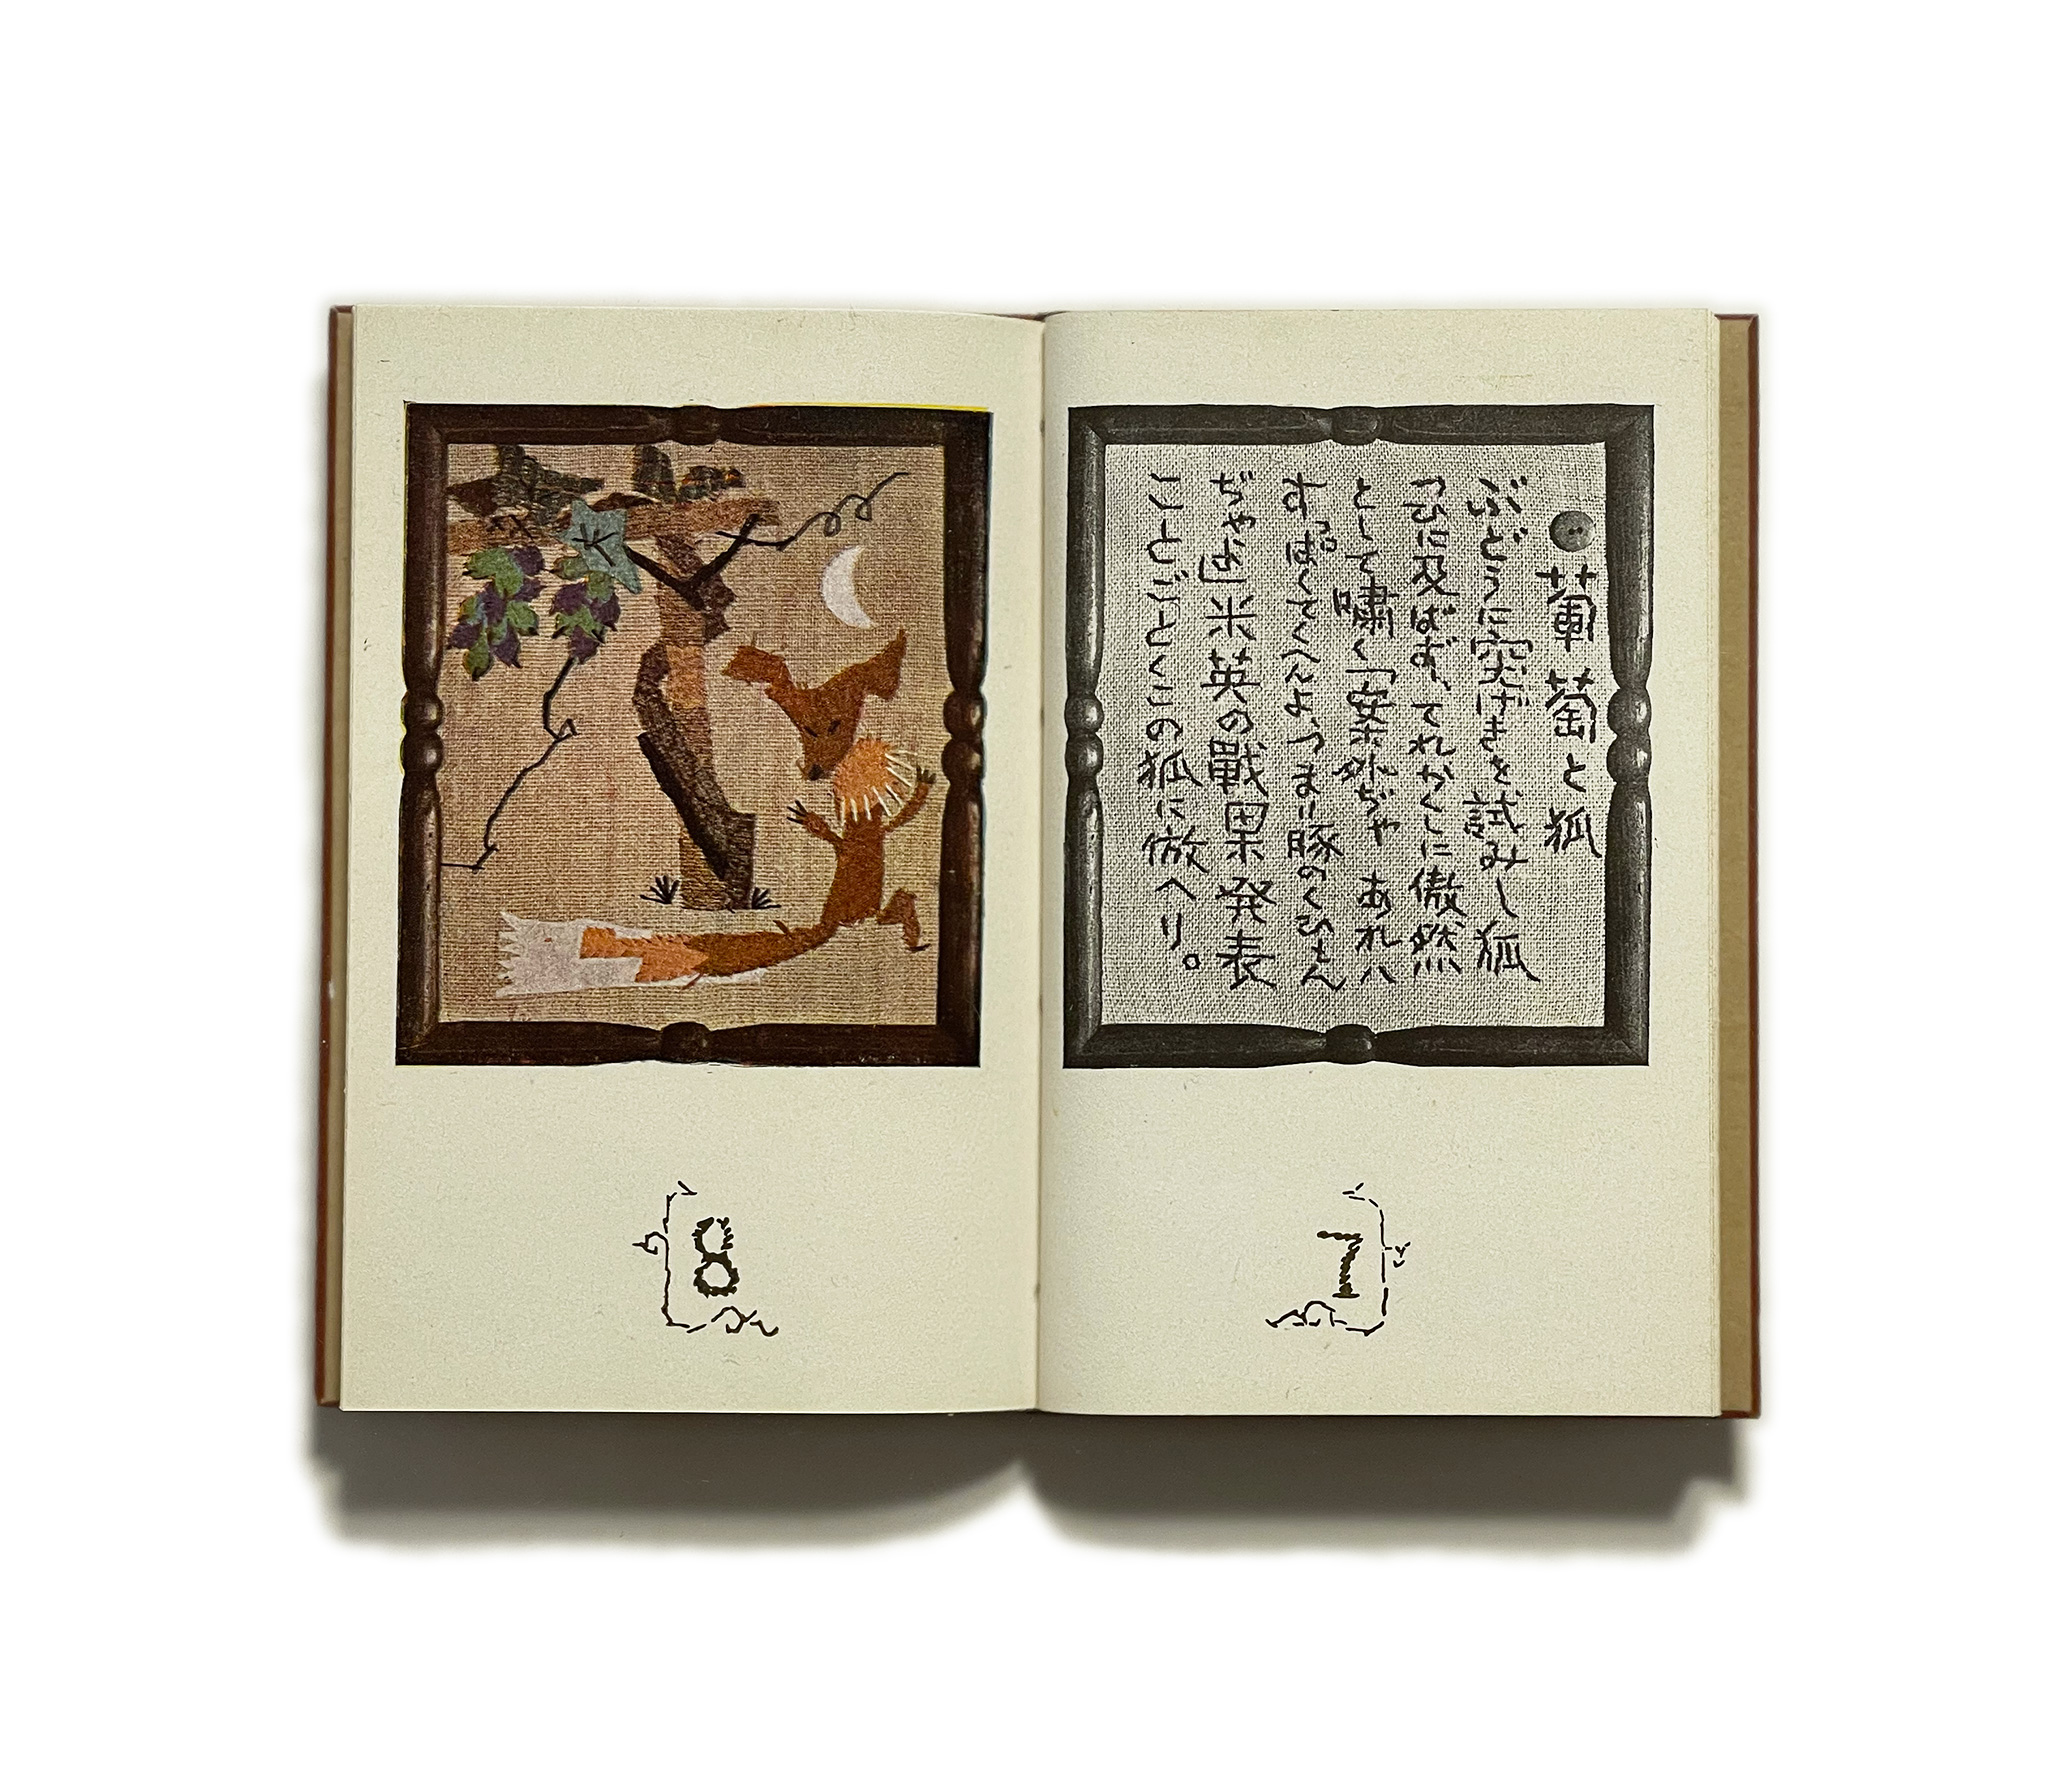 葡萄と狐
ぶどうに突げきを試みし狐
つひに及ばず、てれかくしに傲然
として嘯く「案外ぢゃ あれハ
すっぱくてくへんよ、つまり豚のくひもん
ぢゃ」米英の戰果発表
ことごとくこの狐に倣へり。
7
8